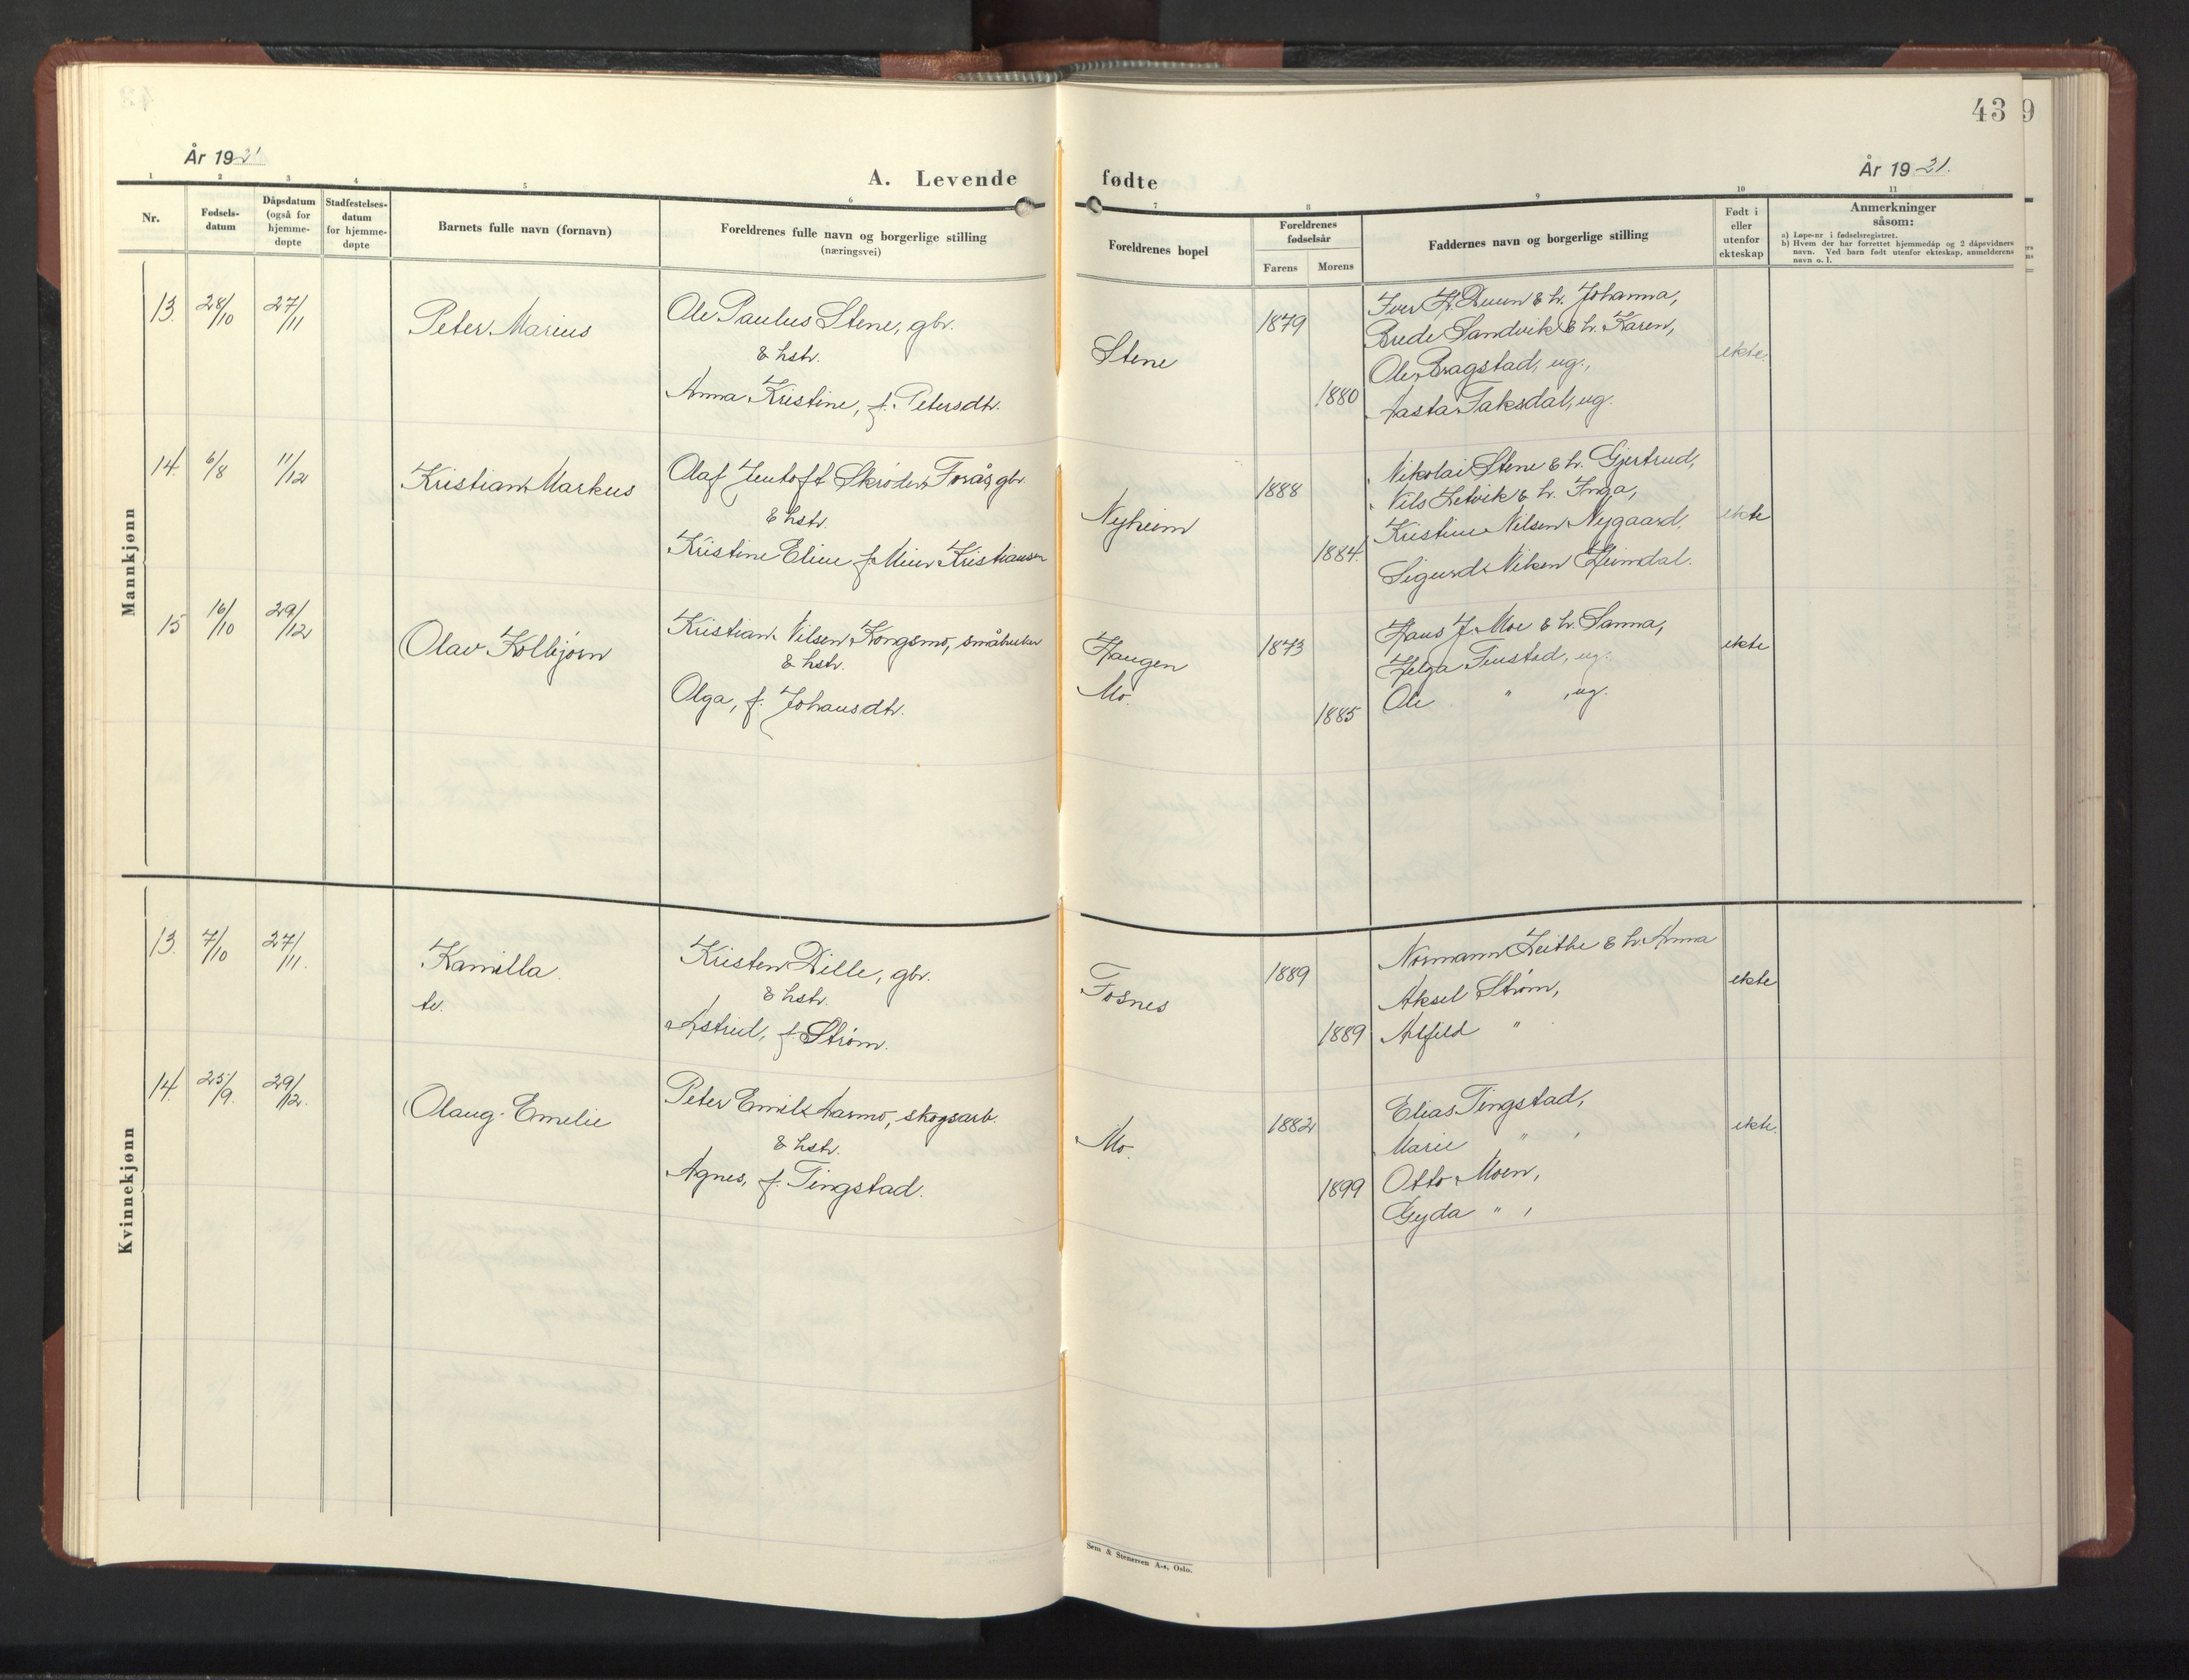 43 9
År 1921
A. Levende
fødte
År 1921.
1 2 3 4 5 6 7 8 9 10 11
Nr.
Fødsels-
datum
Dåpsdatum
(også for
hjemme-
døpte
Stadfestelses-
datum
for hjemme-
døpte
Barnets fulle navn (fornavn)
Foreldrenes fulle navn og borgerlige stilling
(næringsvei)
Foreldrenes bopel
Foreldrenes
fødselsår
Farens Morens
Faddernes navn og borgerlige stilling
Født i
eller
utenfor
ekteskap
Anmerkninger
såsom:
a) Løpe-nr i fødselsregistret.
b) Hvem der har forrettet hjemmedåp og 2 dåpsvidners
navn. Ved barn født utenfor ekteskap, anmelderens
navn o. l.
Mannkjønn
13. 28/10 27/11
Peter Marius
Ole Paulus Stene, gbr.
& hstr.
Anna Kristine, f. Petersdtr.
Stene
1879
1880
Iver A. Duun & h. Johanna,
Brede Sandvik & h. Karen,
Ole Bragstad, ug.,
Aasta Faksdal, ug.
ekte.
14. 6/8 11/12
Kristian Markus
Olaf Jentoft Skrøder Forås, gbr.
& hstr.
Kristine Eline f. Meier Kristiansen
Nyheim
1888
1884.
Nikolai Stene & h. Gjertrud,
Nils Setvik & h. Inga,
Kristine Nilsen Nygaard,
Sigurd Nilsen Heimdal.
ekte
15 16/10 29/12
Olav Kolbjørn
Kristian Nilsen Kongsmo, småbruker
& hstr.
Olga, f. Johansdtr.
Haugen
Mo.
1873
1885
Hans J. Moe & h. Sanna,
Helga Finstad, ug.
Ole " , ug.
ekte
Kvinnekjønn
13. 7/10 27/11.
Kamilla.
tv.
Kristen Dille, gbr.
& hstr.
Astrid, f. Strøm.
Fosnes
1889
1889
Normann Leithe & h. Anna
Aksel Strøm,
Alfild "
ekte
14. 25/9. 29/12.
Olaug Emelie
Peter Emil Aarmo, skogsarb.
& hstr.
Agnes, f. Tingstad.
Mo.
1882
1899
Elias Tingstad,
Marie " ,
Otto Moen,
Gyda " ,
ekte.
Sem & Stenersen A-s, Oslo.